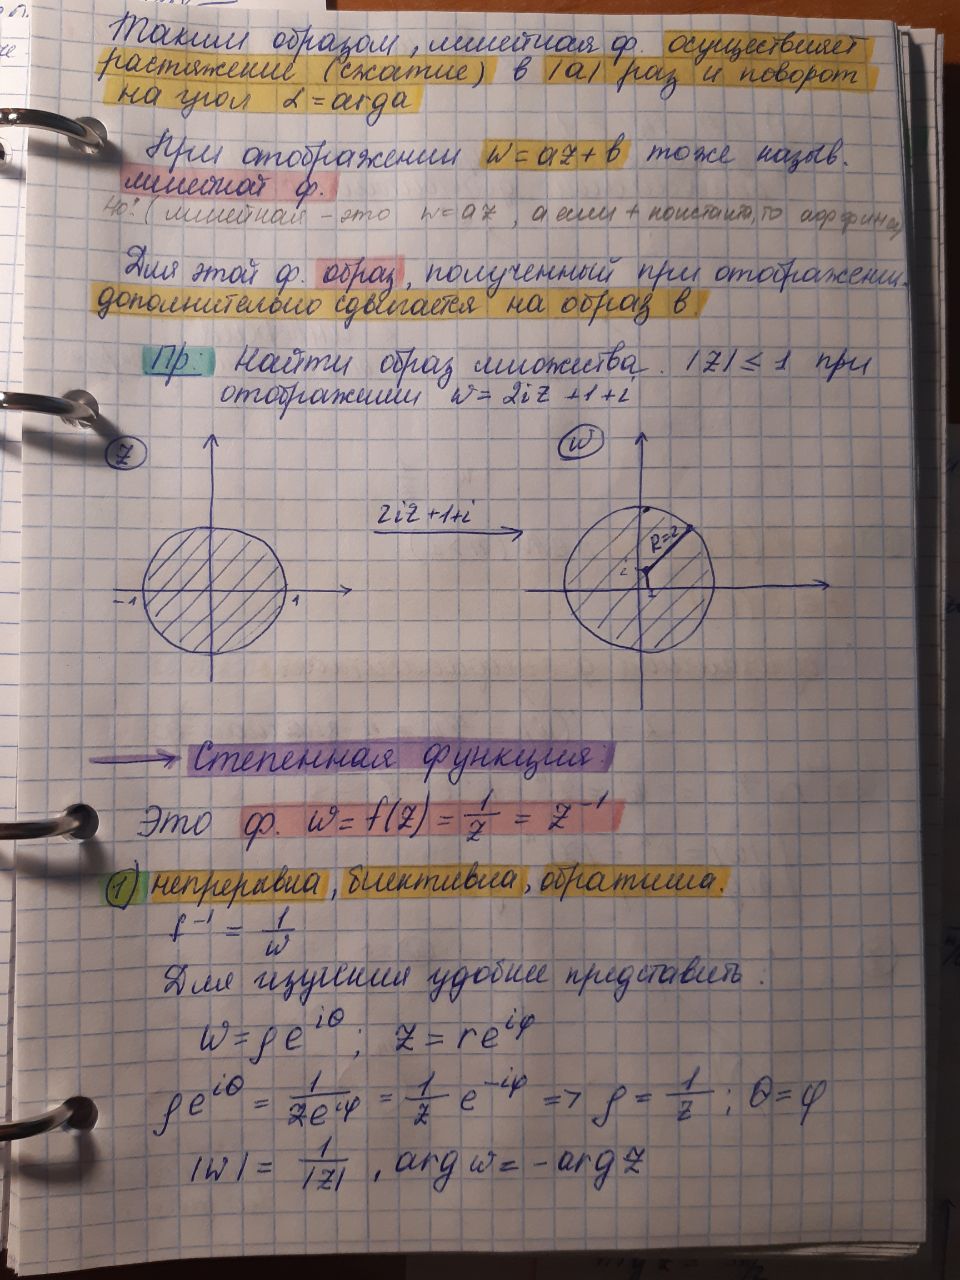 Таким образом, линейная ф. осуществляет
растяжение (сжатие) в |a| раз и поворот
на угол α = arg a
При отображении w = az + b тоже назыв.
линейной ф.
Но! (линейная – это w = az, а если + константа, то
Для этой ф. образ, полученный при отображении
дополнительно сдвигается на образ в.
Пр: Найти образ множества |z| ≤ 1 при
отображении w = 2iz + 1 + i
z
w
2iz + 1 + i
R=2
i
-1
1
1
Степенная функция:
Это ф. w = f(z) = 1/z = z⁻¹
1) непрерывна, биективна, обратима.
f⁻¹ = 1/w
Для изучения удобнее представить:
w = ρe^{iθ}; z = re^{iφ}
ρe^{iθ} = 1/(ze^{iφ}) = 1/z e^{-iφ} => ρ = 1/z; θ = φ
|w| = 1/|z|, arg w = - arg z